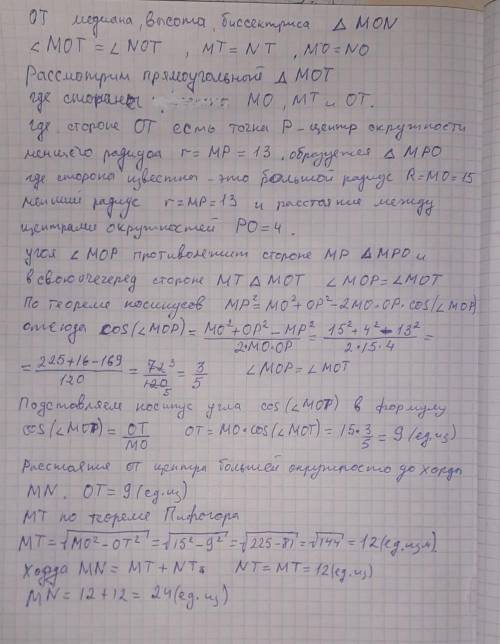 ОТ медиана, высота, биссектриса Δ MON
∠MOT = ∠NOT , MT = NT , MO = NO
Рассмотрим прямоугольный Δ MOT
где стороны MO, MT и OT.
где стороне ОТ есть точка Р - центр окружности
меньшего радиуса r = MP = 13 образуется Δ MPO
где стороны известны - это большой радиус R = MO = 15
меньший радиус r = MP = 13 и расстояние между
центрами окружностей PO = 4.
угол ∠MOP противолежит стороне MP Δ MPO и
в свою очеред стороне MT Δ MOT ∠MOP = ∠MOT
По теореме косинусов MP² = MO² + OP² - 2MO·OP·cos(∠MOP)
отсюда cos(∠MOP) = (MO² + OP² - MP²)/(2·MO·OP) = (15² + 4² - 13²)/(2·15·4) =
= (225 + 16 - 169)/120 = 72³/120₅ = 3/5 ∠MOP = ∠MOT
Подставляем косинус угла cos(∠MOT) в формулу
cos(∠MOT) = OT/MO OT = MO·cos(∠MOT) = 15·3/5 = 9 (ед.из)
Расстояния от центра большей окружносто до хорды
MN. OT = 9 (ед.из)
MT по теореме Пифогора
MT = √(MO² - OT²) = √(15² - 9²) = √(225 - 81) = √144 = 12 (ед.изм).
Хорда MN = MT + NT. NT = MT = 12 (ед.из)
MN = 12 + 12 = 24 (ед.из)